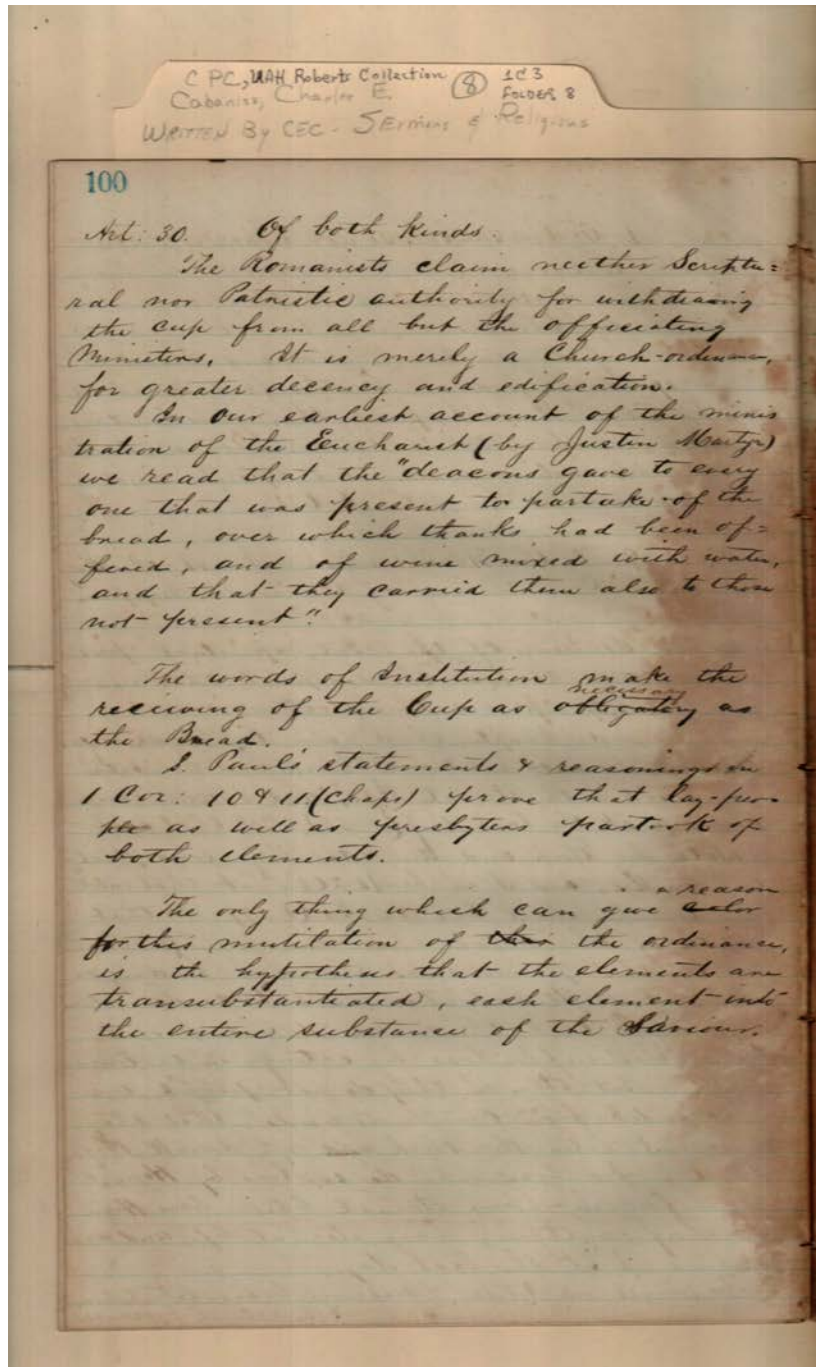 C PC, UAH Roberts Collection (8) 1C3
Cabaniss, Charles E. FOLDER 8
WRITTEN By CEC - SErmons & Religious
100
Art: 30. Of both kinds.
The Romanists claim neither Scriptu=
ral nor Patristic authority for withdrawing
the cup from all but the officiating
Ministers. It is merely a Church-ordinance,
for greater decency and edification.
In our earliest account of the minis
tration of the Eucharist (by Justin Martyr)
we read that the "deacons gave to every
one that was present to partake of the
bread, over which thanks had been of=
fered, and of wine mixed with water,
and that they carried them also to those
not present".
The words of Institution make the
necessary
receiving of the Cup as obligatory as
the Bread.
S. Paul's statements & reasonings in
1 Cor: 10 & 11 (chaps) prove that lay-peo
ple as well as presbyters partook of
both elements.
a reason
The only thing which can give color
for this mutilation of this the ordinance,
is the hypothesis that the elements are
transubstantiated, each element into
the entire substance of the Saviour.